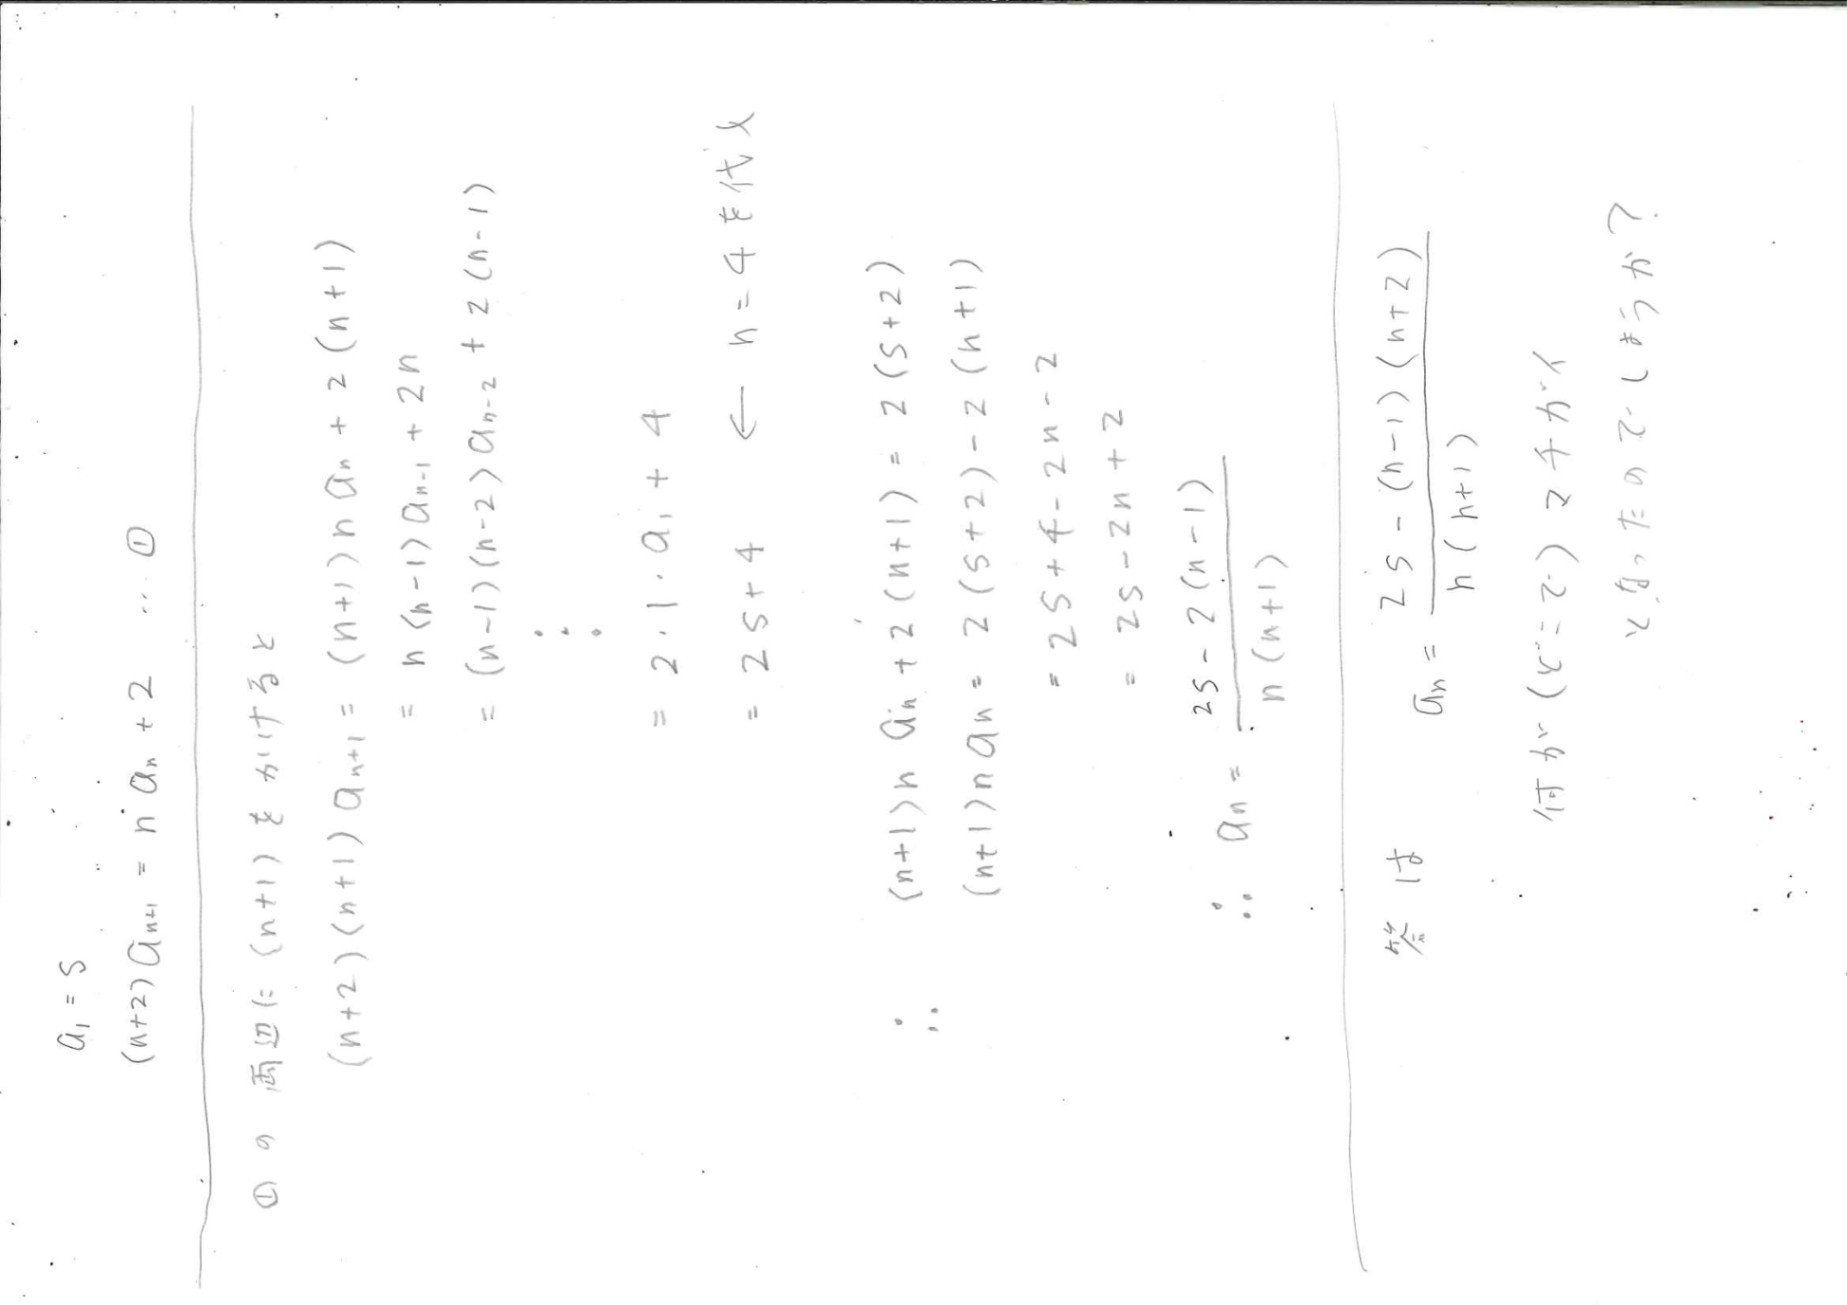 a₁ = S
(n+2)aₙ₊₁ = n aₙ + 2 … ①
① の 両辺に (n+1) を かけると
(n+2)(n+1)aₙ₊₁ = (n+1)n aₙ + 2(n+1)
= n(n-1)aₙ₋₁ + 2n
= (n-1)(n-2)aₙ₋₂ + 2(n-1)
⋮
= 2・1・a₁ + 4
= 2S+4 ← n=4を代入
∴ (n+1)n aₙ + 2(n+1) = 2(S+2)
(n+1)n aₙ = 2(S+2) - 2(n+1)
= 2S+4-2n-2
= 2S-2n+2
∴ aₙ = (2S-2(n-1))/(n(n+1))
答は aₙ = (2S-(n-1)(n+2))/(n(n+1))
何が (どこで) マチガイ
となったのでしょうか?